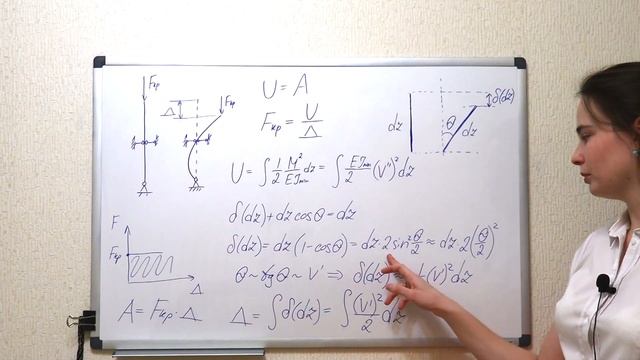 Fкр
Δ
Fкр
U = A
Fкр = U/Δ
dz
θ
dz
δ(dz)
U = ∫ 1/2 M²/EJmin dz = ∫ EJmin/2 (V'')² dz
δ(dz) + dz cosθ = dz
δ(dz) = dz (1 - cosθ) = dz·2 sin² θ/2 ≈ dz 2(θ/2)²
θ ~ tgθ ~ V' ⇒ δ(dz) (V')² dz
F
Fкр
Δ
A = Fкр · Δ
Δ = ∫ δ(dz) = ∫ (V')²/2 dz